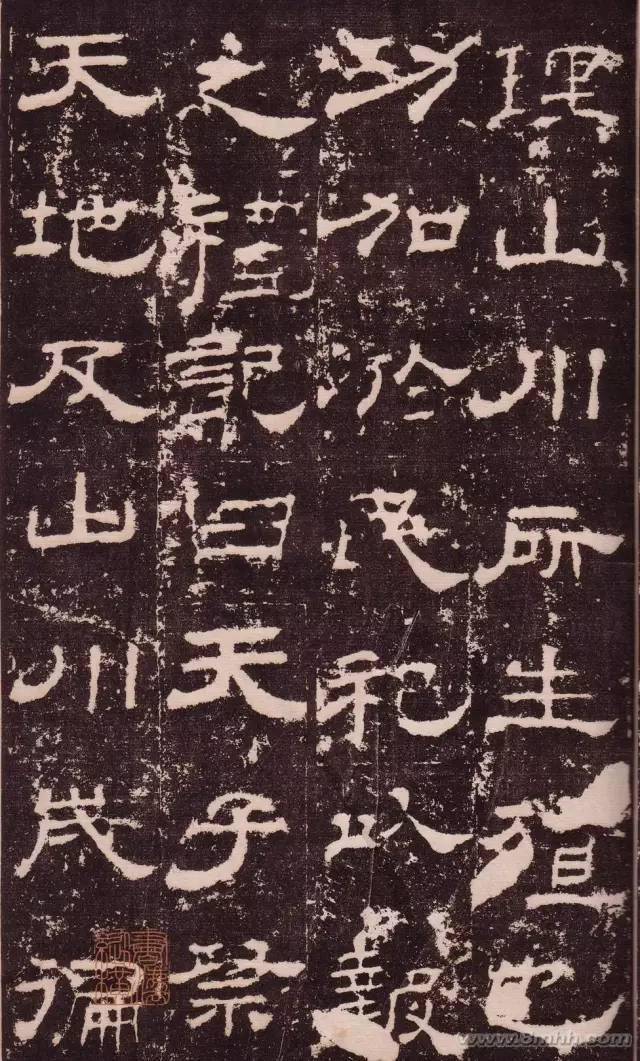 理山川所生殖也
功加於民祀以報
之禮記曰天子祭
天地及山川歲徧
www.8mhh.com